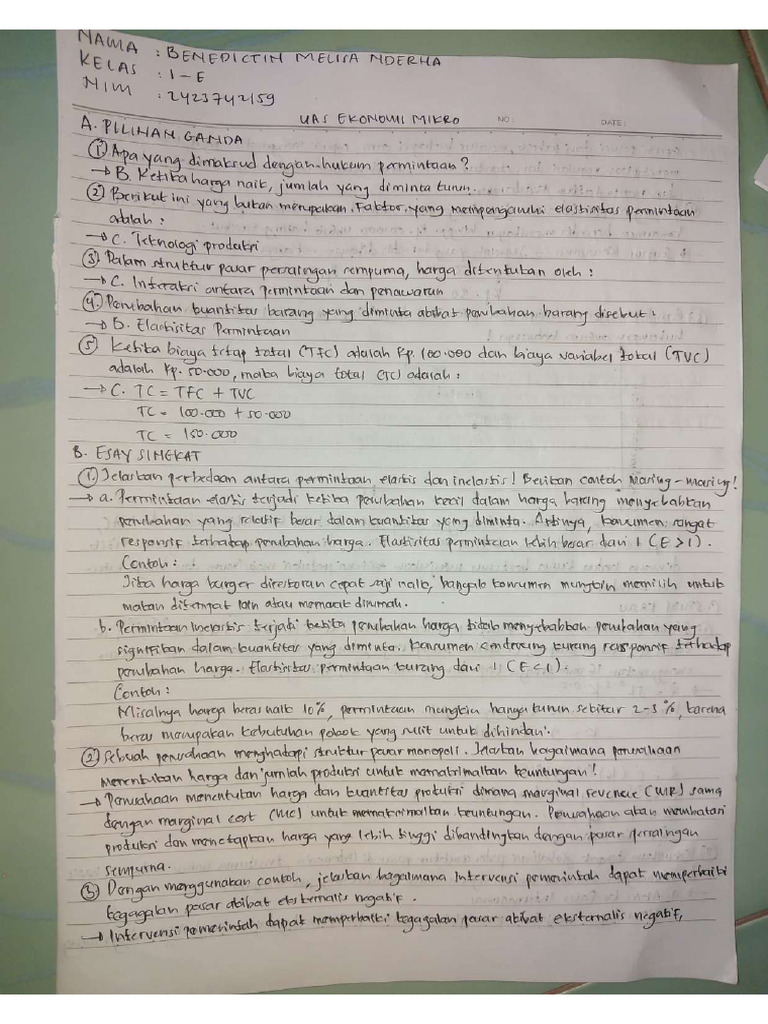 NAMA : BENEDICTIN MELISA NDERHA
KELAS : 1-E
NIM : 2423742159
UAS EKONOMI MIKRO NO: DATE:
A. PILIHAN GANDA
① Apa yang dimaksud dengan hukum permintaan?
→ B. Ketika harga naik, jumlah yang diminta turun.
② Berikut ini yang bukan merupakan Faktor yang mempengaruhi elastisitas permintaan
adalah :
→ C. Teknologi produksi
③ Dalam struktur pasar persaingan sempurna, harga ditentukan oleh :
→ C. Interaksi antara permintaan dan penawaran
④ Perubahan kuantitas barang yang diminta akibat perubahan barang disebut :
→ B. Elastisitas Permintaan
⑤ Ketika biaya tetap total (TFC) adalah Rp. 100.000 dan biaya variabel total (TVC)
adalah Rp. 50.000, maka biaya total (TC) adalah :
→ C. TC = TFC + TVC
TC = 100.000 + 50.000
TC = 150.000
B. ESAY SINGKAT
① Jelaskan perbedaan antara permintaan elastis dan inelastis! Berikan contoh Masing-masing!
→ a. Permintaan elastis terjadi ketika perubahan kecil dalam harga barang menyebabkan
perubahan yang relatif besar dalam kuantitas yang diminta. Artinya, konsumen sangat
responsif terhadap perubahan harga. Elastisitas permintaan lebih besar dari 1 (E>1).
Contoh :
Jika harga burger direstoran cepat saji naik, banyak konsumen mungkin memilih untuk
makan ditempat lain atau memasak dirumah.
b. Permintaan Inelastis terjadi ketika perubahan harga tidak menyebabkan perubahan yang
signifikan dalam kuantitas yang diminta. Konsumen cenderung kurang responsif terhadap
perubahan harga. Elastisitas permintaan kurang dari 1 (E<1).
Contoh :
Misalnya harga beras naik 10%, permintaan mungkin hanya turun sekitar 2-3%, karena
beras merupakan kebutuhan pokok yang sulit untuk dihindari.
② Sebuah perusahaan menghadapi struktur pasar monopoli. Jelaskan bagaimana perusahaan
Menentukan harga dan jumlah produksi untuk memaksimalkan keuntungan!
→ Perusahaan menentukan harga dan kuantitas produksi dimana marginal revenue (MR) sama
dengan marginal cost (MC) untuk memaksimalkan keuntungan. Perusahaan akan membatasi
produksi dan menetapkan harga yang lebih tinggi dibandingkan dengan pasar persaingan
sempurna.
③ Dengan menggunakan contoh, jelaskan bagaimana Intervensi pemerintah dapat memperbaiki
kegagalan pasar akibat eksternalis negatif.
→ Intervensi pemerintah dapat memperbaiki kegagalan pasar akibat eksternalis negatif,